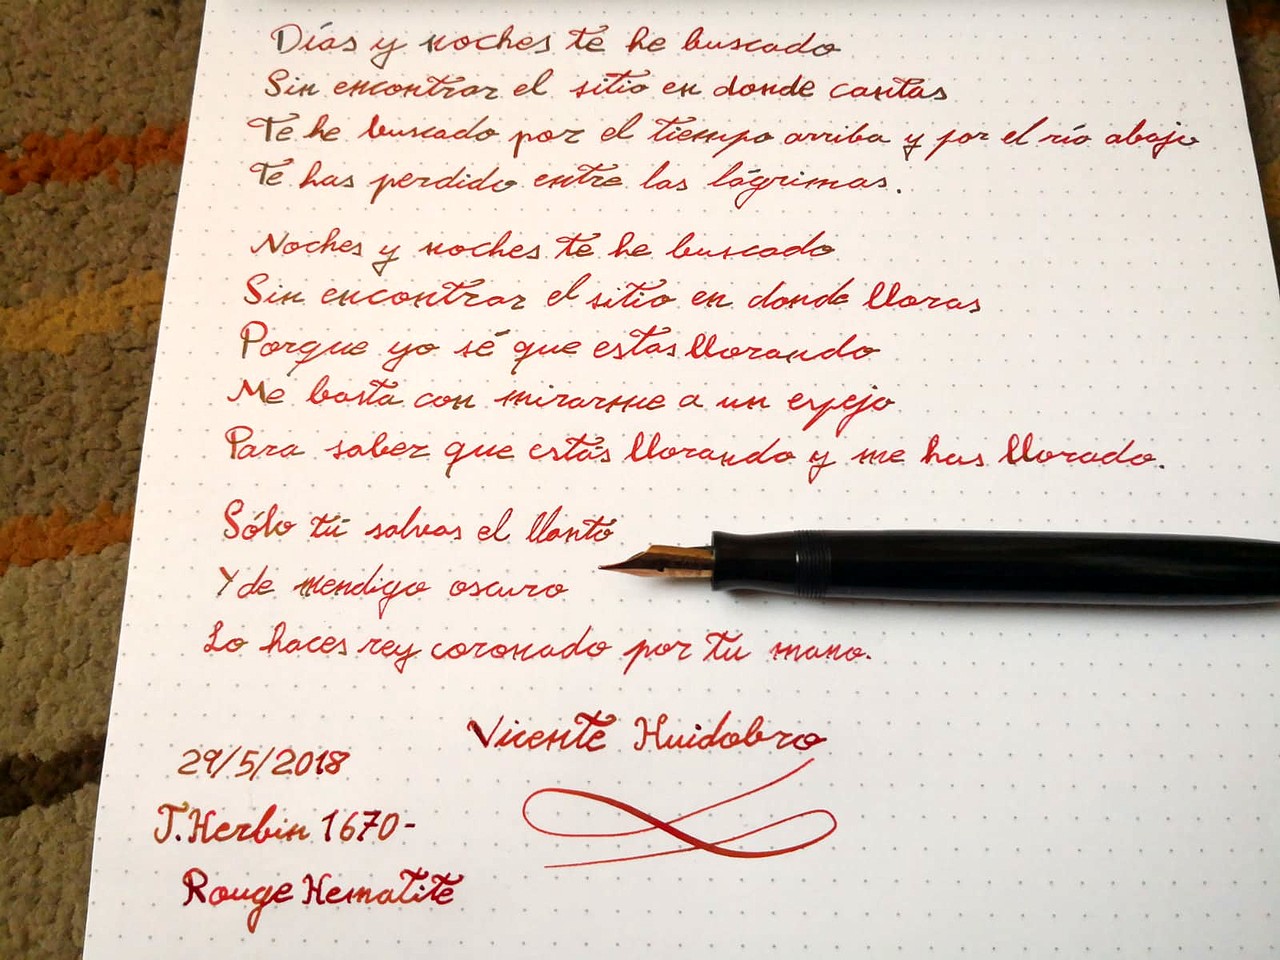 Días y noches te he buscado
Sin encontrar el sitio en donde cantas
Te he buscado por el tiempo arriba y por el río abajo
Te has perdido entre las lágrimas.
Noches y noches te he buscado
Sin encontrar el sitio en donde lloras
Porque yo sé que estás llorando
Me basta con mirarme a un espejo
Para saber que estás llorando y me has llorado.
Sólo tú salvas el llanto
Y de mendigo oscuro
Lo haces rey coronado por tu mano.
Vicente Huidobro
29/5/2018
J. Herbin 1670-
Rouge Hematite